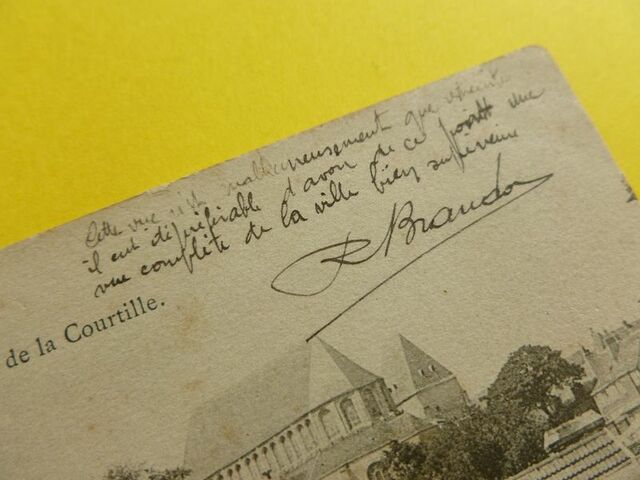 Cette vue est malheureusement que
il eut été préférable d'avoir de ce point une
vue complète de la ville bien
R Brandon
de la Courtille.